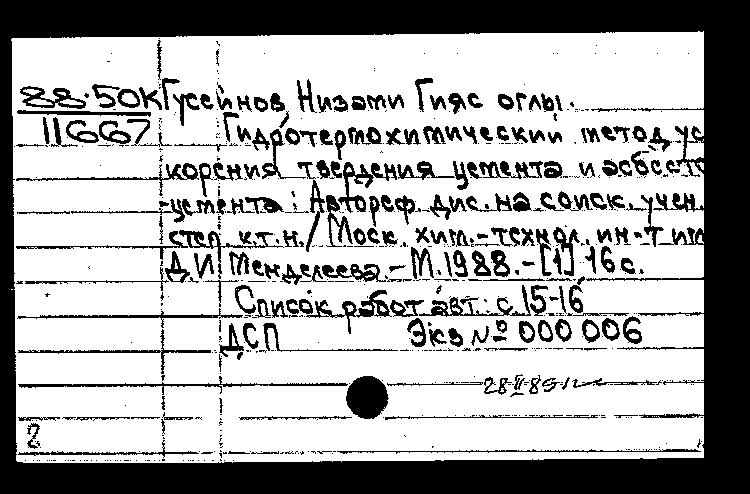 88-50К Гусейнов, Низами Гияс оглы.
11667 Гидротермохимический метод ус
корения твердения цемента и асбесто
-цемента: Автореф. дис. на соиск. учен.
степ. к.т.н. / Моск. хим.-технол. ин-т им
Д.И. Менделеева. - М. 1988. - [1] 16 с.
Список работ авт.: с. 15-16
ДСП Экз № 000 006
2